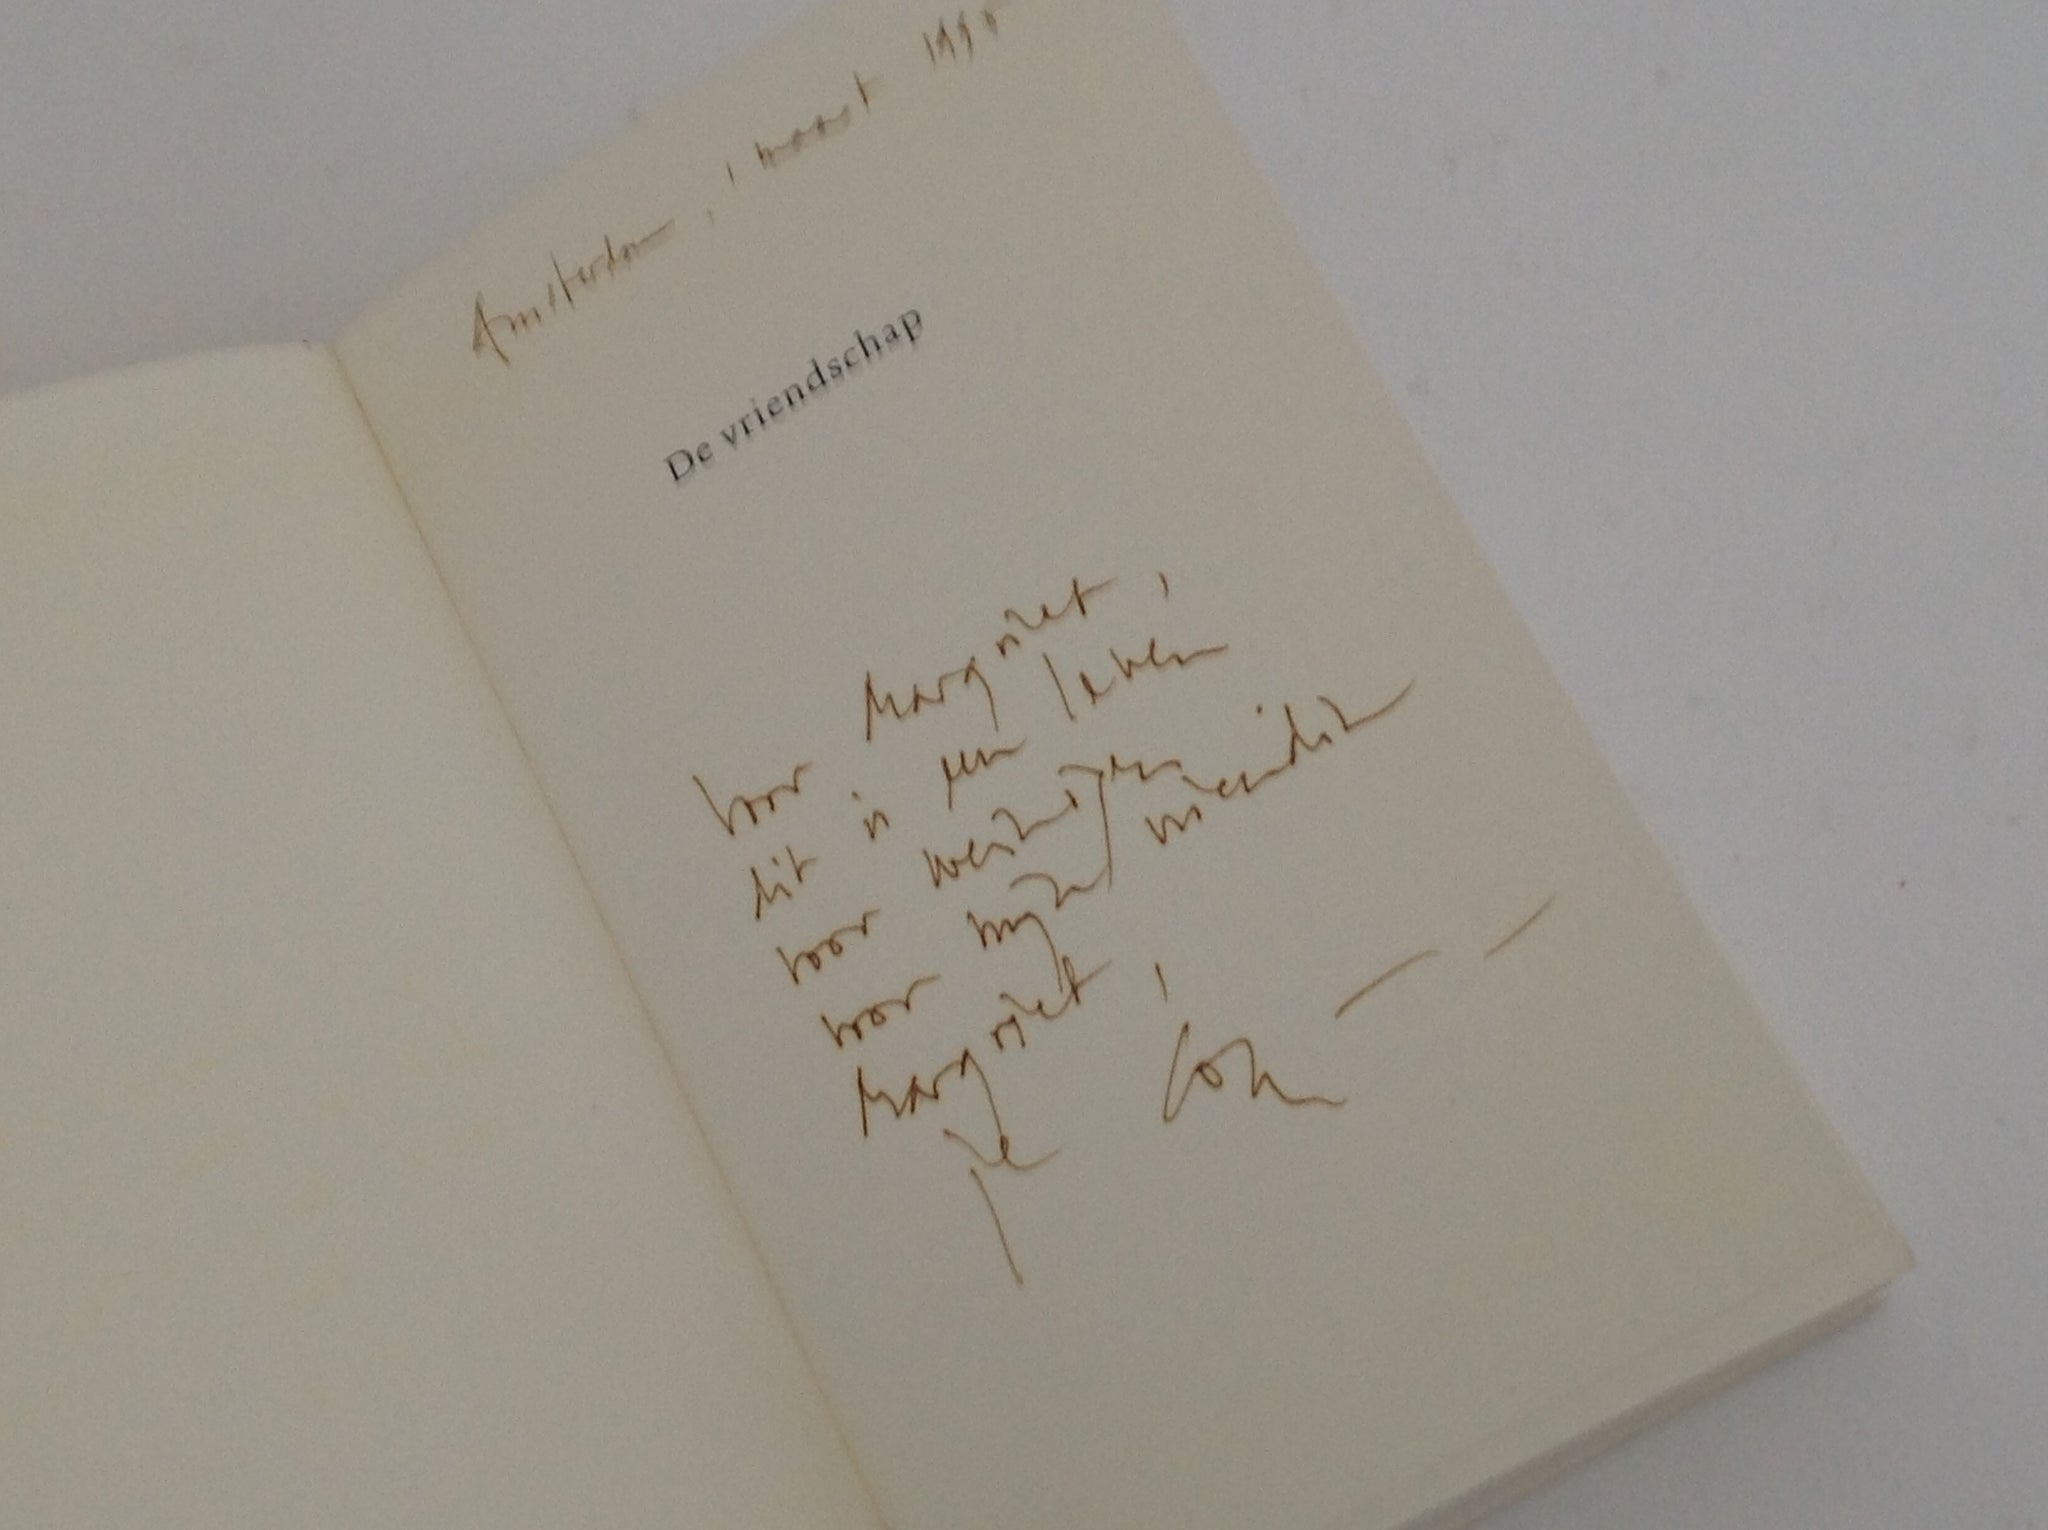 Amsterdam, 1 maart 1995
De vriendschap
Voor Margriet,
dit is een leven
voor weinigen
voor mijn vriendin
Margriet,
je Con